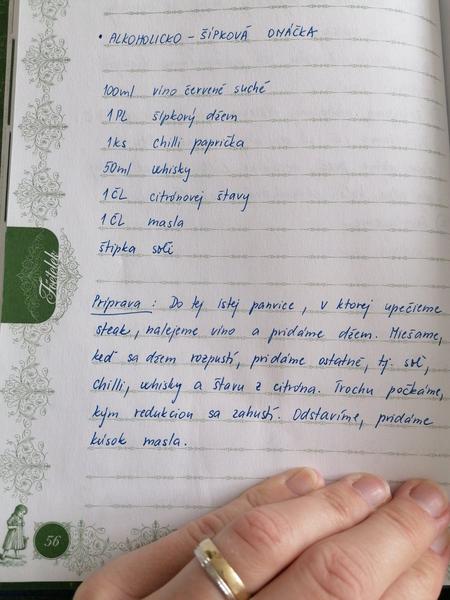 • ALKOHOLICKO - ŠÍPKOVÁ OMÁČKA
100ml víno červené suché
1PL šípkový džem
1ks chilli paprička
50ml whisky
1ČL citrónovej šťavy
1ČL masla
štipka soli
Príprava: Do tej istej panvice, v ktorej upečieme
steak, nalejeme víno a pridáme džem. Miešame,
keď sa džem rozpustí, pridáme ostatné, tj. soľ,
chilli, whisky a šťavu z citróna. Trochu počkáme,
kým redukciou sa zahustí. Odstavíme, pridáme
kúsok masla.
56